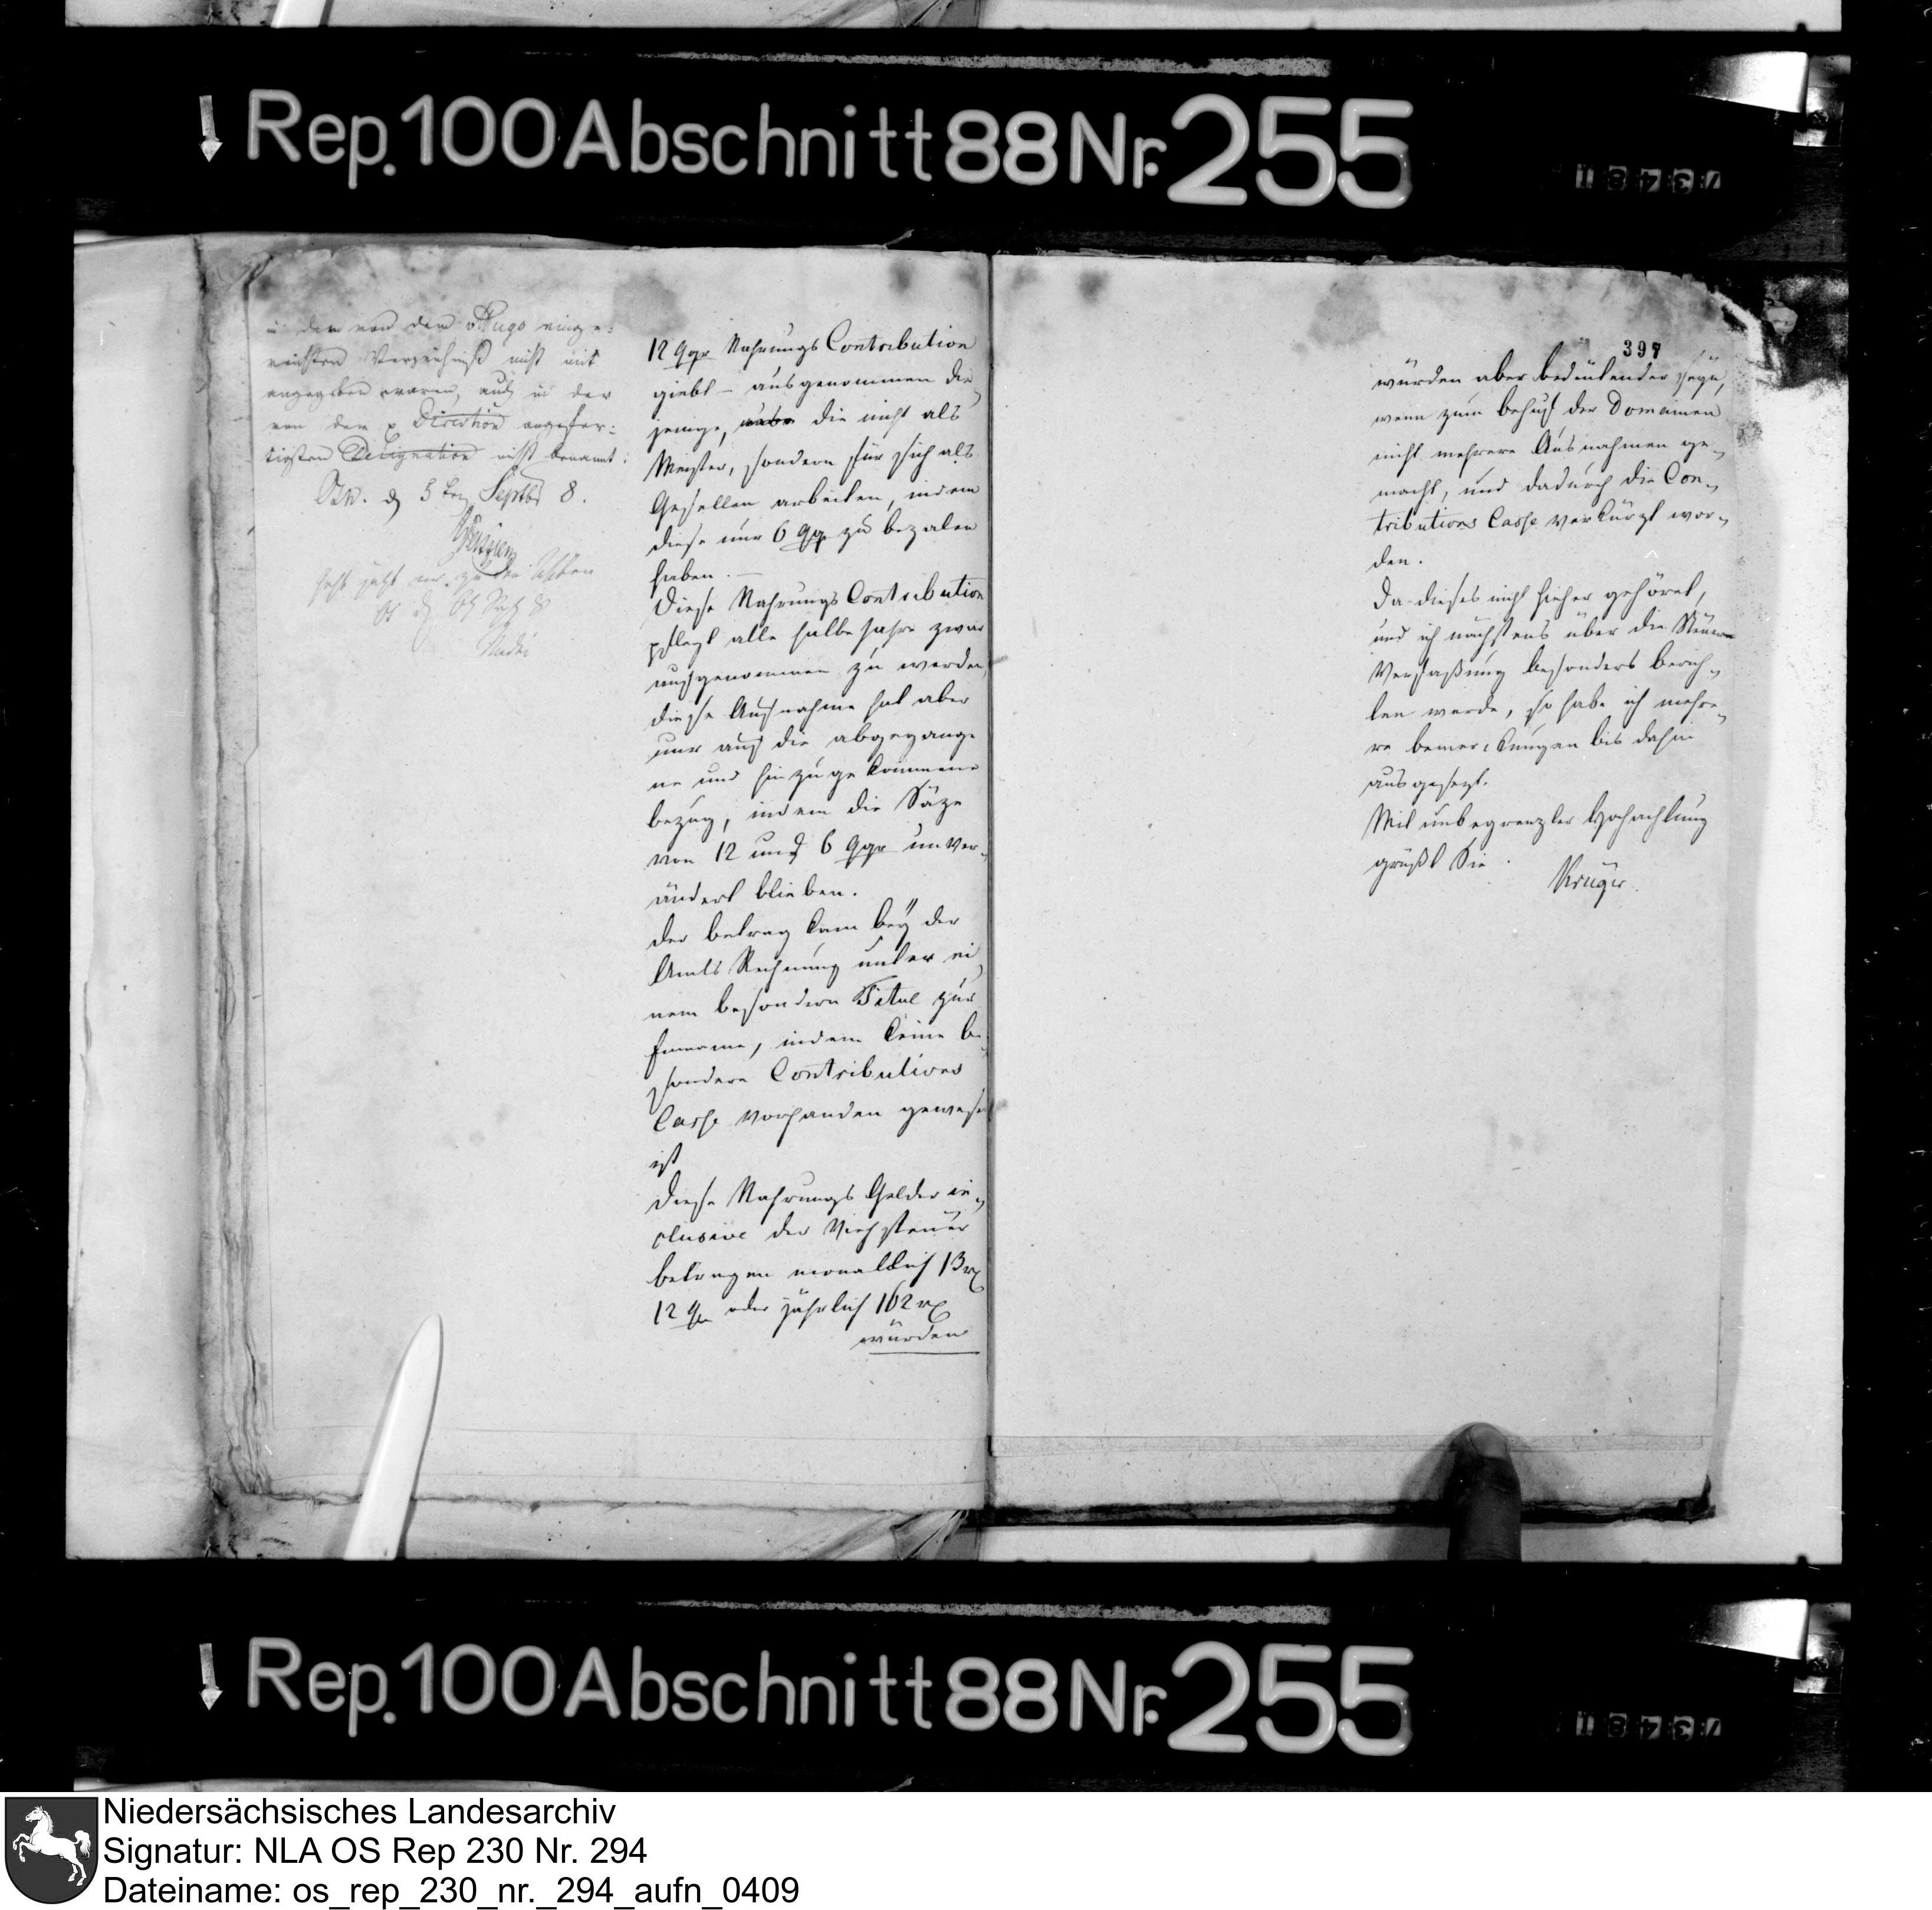 Rep. 100 Abschnitt 88 Nr. 255
73481
in der von dem Hugo einge:
reichten Verzeichniß nicht mit
angegeben waren, auch in der
von dem p Direction angefer:
tigten Designation nicht benannt.
Osn. d 5ten Septbr 8.
jetzt zu den Akten
12 ggr Nahrungs Contribution
giebt – ausgenommen die
jenige, die nicht als
Meister, sondern für sich als
Gesellen arbeiten, indem
diese nur 6 ggr zu bezalen
haben. –
Diese Nahrungs Contribution
pflegt alle halbe Jahre zwar
aufgenommen zu werden
diese Aufnahme hat aber
nur auf die abgegange
ne und hinzugekommene
bezug, indem die Säze
von 12 und 6 ggr unver-
ändert blieben.
Der betrag kam beÿ der
Amts Rechnung unter ei
nem besondern Titul zur
Einname, indem keine be
sondere Contributions
Casse vorhanden gewesen
ist
Diese Nahrungs Gelder in-
clusive der Viehsteuer
betragen monatlich 13 rx
12 ggr oder jährlich 162 rx
würden
397
würden aber bedeutender seyn,
wenn zum behuf der Domainen
nicht mehrere Ausnahmen ge-
macht, und dadurch die Con-
tributions Casse verkürzt wor-
den.
Da dieses nicht hieher gehöret,
und ich nächstens über die Steuer
Verfaßung besonders berich-
ten werde, so habe ich mehre-
re bemerkungen bis dahin
ausgesezt.
Mit unbegrenzter Hochachtung
grüßt Sie.
Krüger.
Rep. 100 Abschnitt 88 Nr. 255
73481
Niedersächsisches Landesarchiv
Signatur: NLA OS Rep 230 Nr. 294
Dateiname: os_rep_230_nr._294_aufn_0409